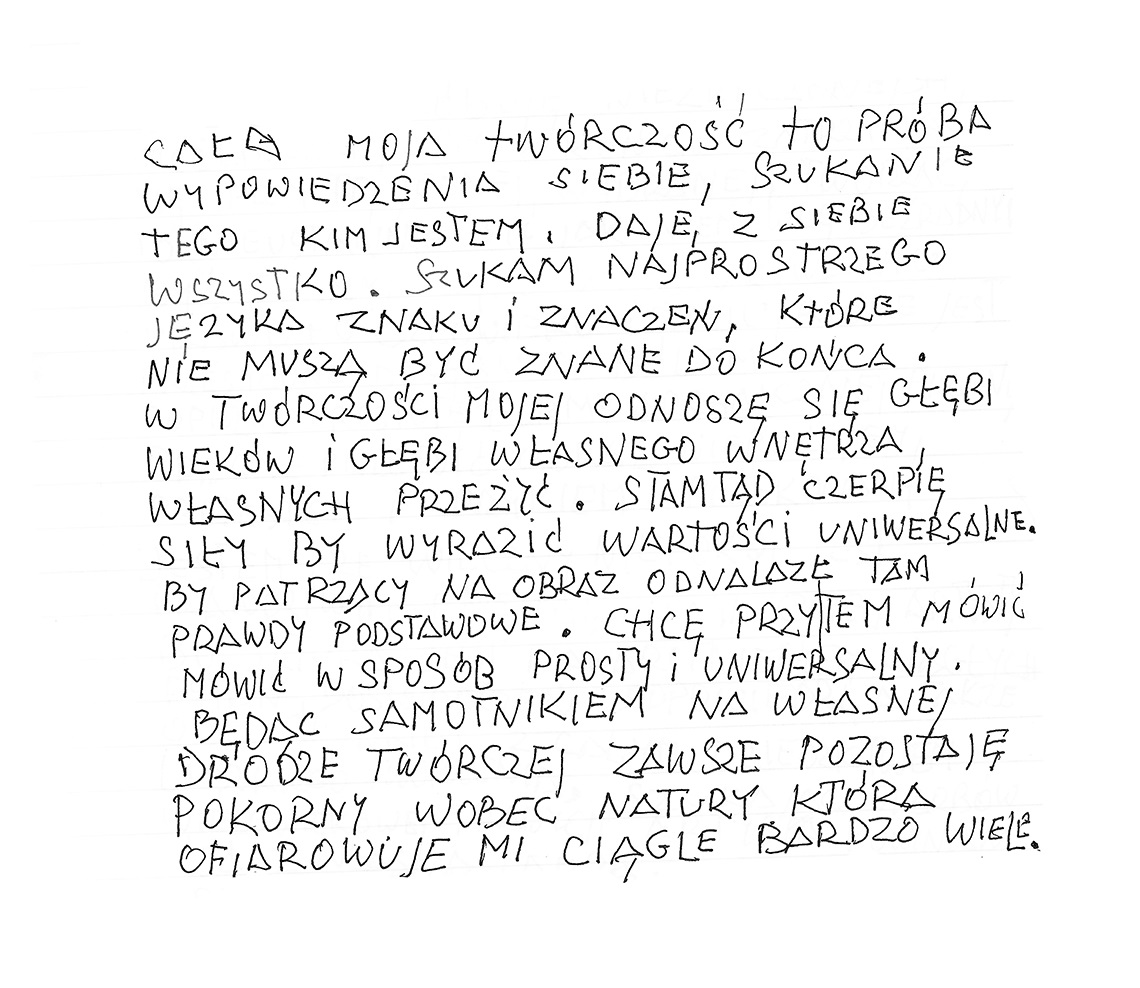 CAŁA MOJA TWÓRCZOŚĆ TO PRÓBA
WYPOWIEDZENIA SIEBIE, SZUKANIE
TEGO KIM JESTEM. DAJĘ Z SIEBIE
WSZYSTKO. SZUKAM NAJPROSTRZEGO
JĘZYKA ZNAKU I ZNACZEŃ, KTÓRE
NIE MUSZĄ BYĆ ZNANE DO KOŃCA.
W TWÓRCZOŚCI MOJEJ ODNOSZĘ SIĘ GŁĘBI
WIEKÓW I GŁĘBI WŁASNEGO WNĘTRZA,
WŁASNYCH PRZEŻYĆ. STAMTĄD CZERPIĘ
SIŁY BY WYRAZIĆ WARTOŚCI UNIWERSALNE.
BY PATRZĄCY NA OBRAZ ODNALAZŁ TAM
PRAWDY PODSTAWOWE. CHCĘ PRZYTEM MÓWIĆ
MÓWIĆ W SPOSÓB PROSTY I UNIWERSALNY.
BĘDĄC SAMOTNIKIEM NA WŁASNEJ
DRODZE TWÓRCZEJ ZAWSZE POZOSTAJĘ
POKORNY WOBEC NATURY KTÓRA
OFIAROWUJE MI CIĄGLE BARDZO WIELE.